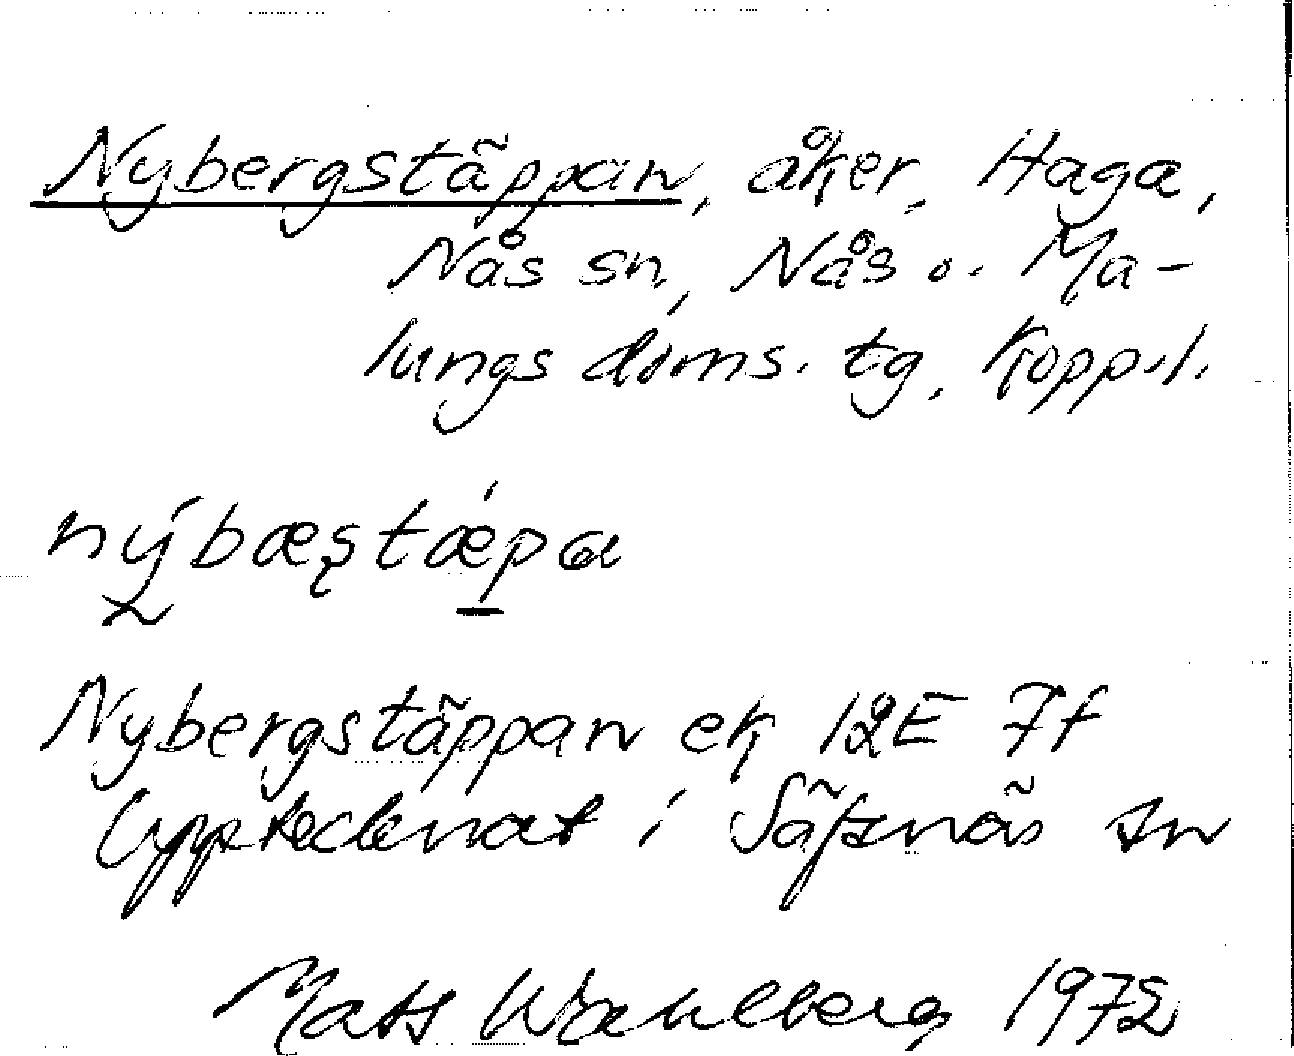 Nybergstäppan, åker, Haga,
Nås sn, Nås o. Ma-
lungs doms. tg, Kopp. l.
nýbæstǽpa
Nybergstäppan ek 12E 7f
Upptecknat i Säfsnäs sn
Mats Wahlberg 1972